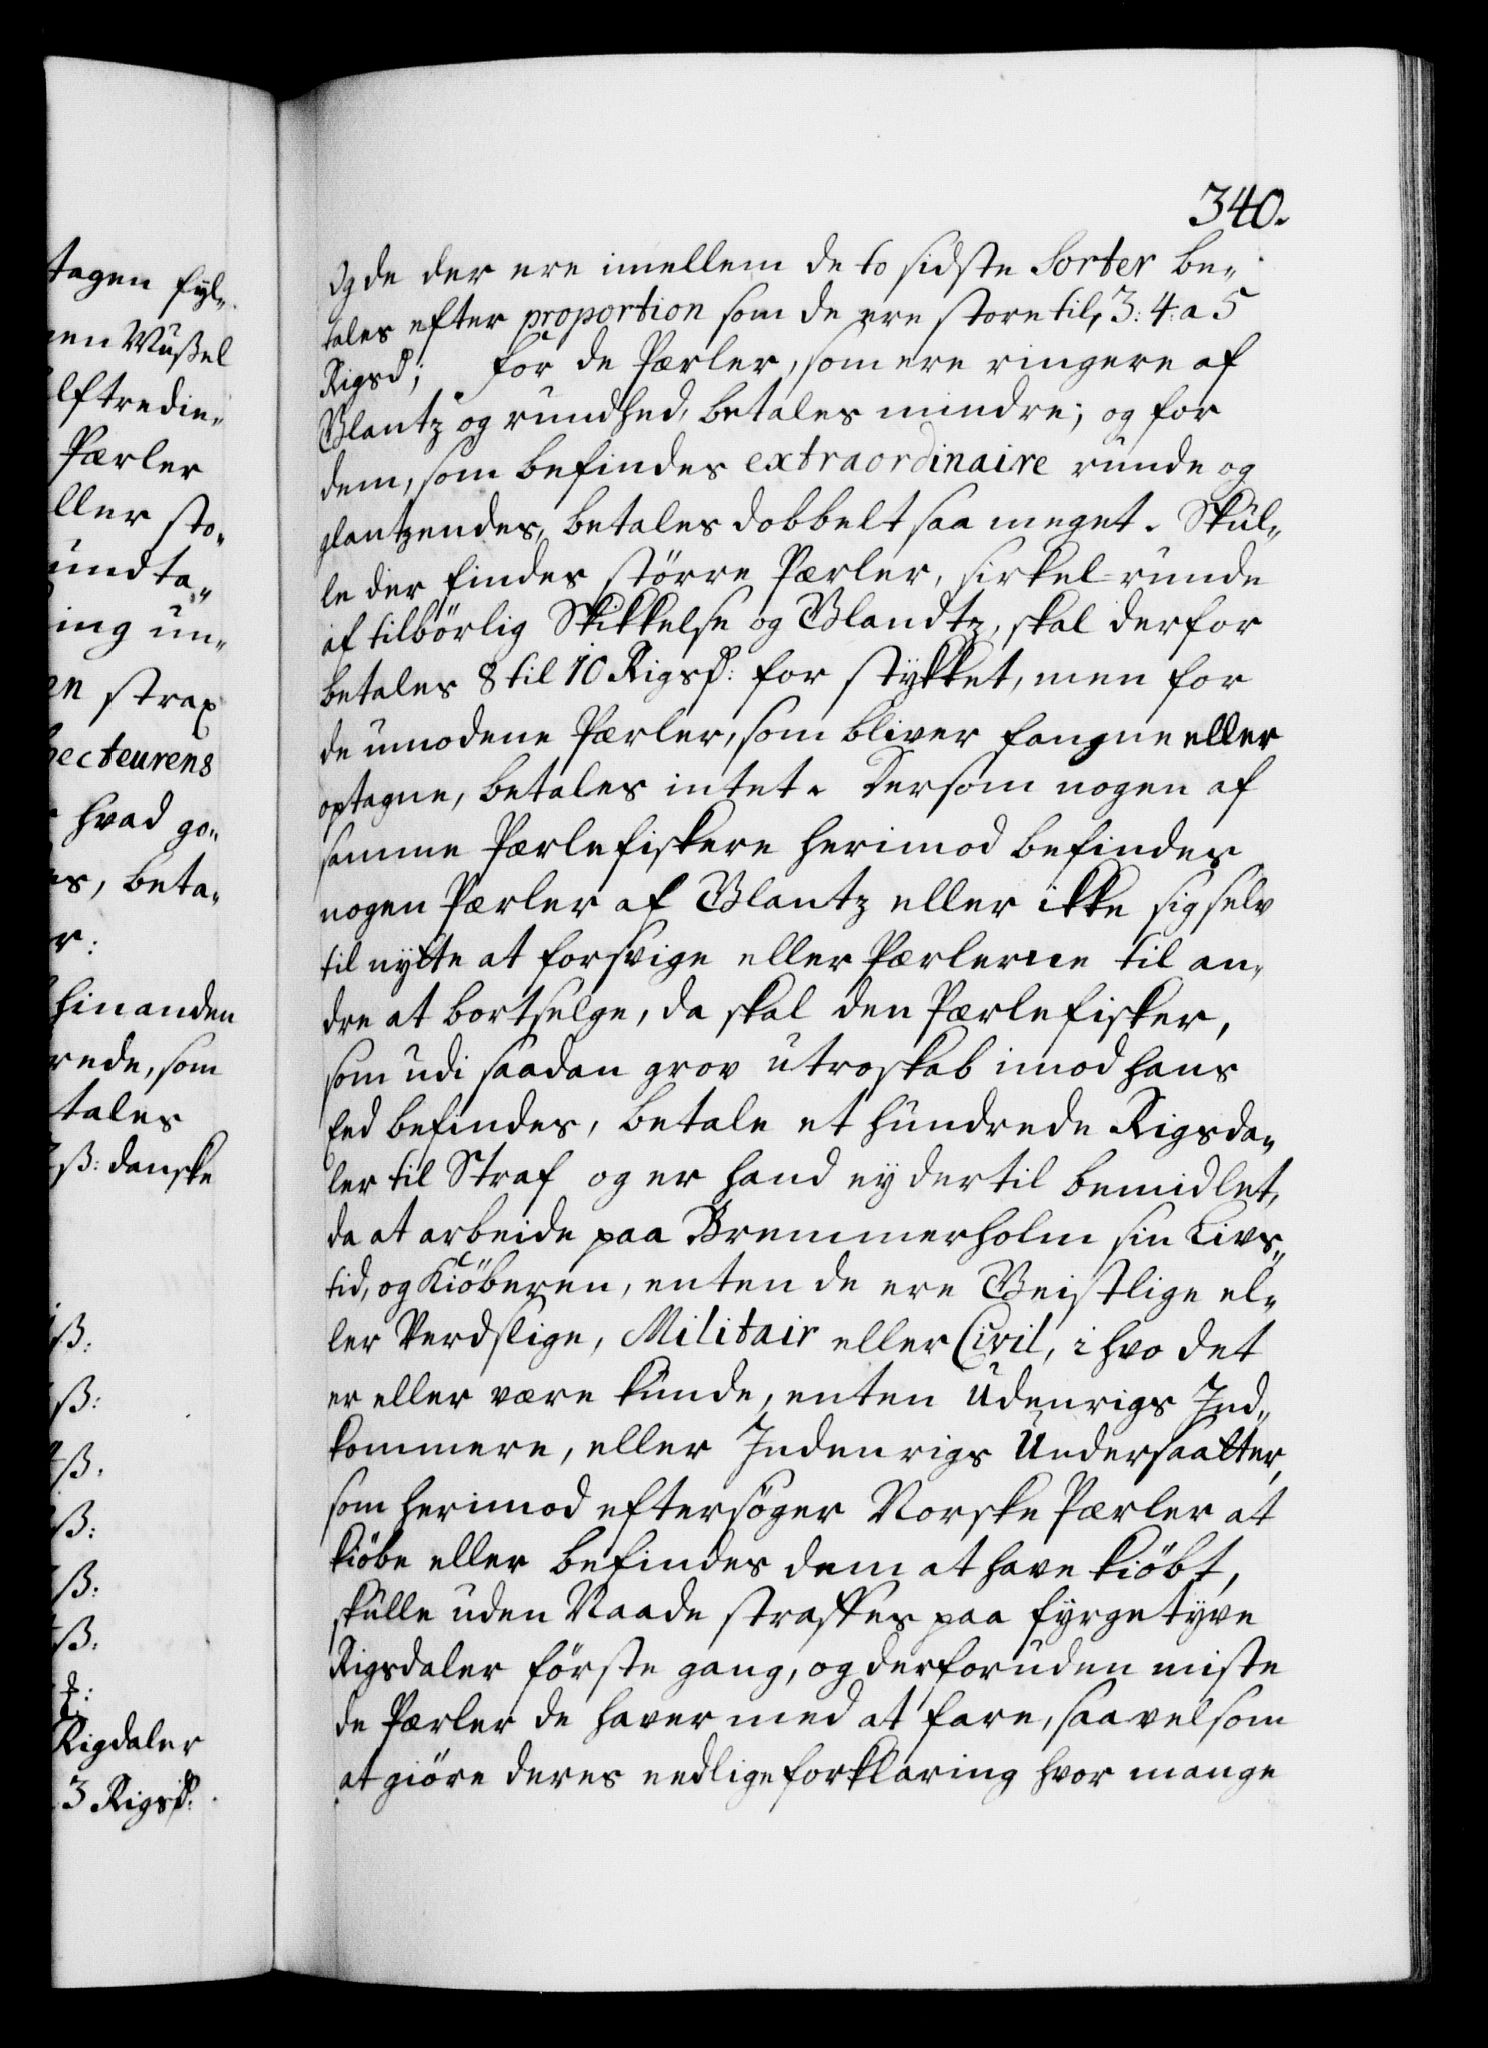 tagen fyl-
nen Mußel
lftredie-
Pærler
ller sto-
undta-
ing un-
en strax
ecteurens
hvad go-
es, beta-
r:
hinanden
rede, som
tales
ß: danske
ß:
ß:
ß:
ß:
ß:
ß:
Rigdaler
3 Rigsd:
340.
Og de der ere imellem de to sidste Sorter be-
tales efter proportion som de ere store til, 3: 4: a 5
Rigsd; for de Pærler, som ere ringere af
Glantz og rundhed, betales mindre; og for
dem, som befindes extraordinaire runde og
glantzendes, betales dobbelt saa meget. Skul-
le der findes större Pærler, sirkel-runde
af tilbörlig Skikkelse og Glandtz, skal derfor
betales 8 til 10 Rigsd: for stykket, men for
de umodene Pærler, som bliver fangne eller
optagne, betales intet. Dersom nogen af
samme Pærlefiskere herimod befindes
nogen Pærler af Glantz eller ikke sig selv
til nytte at forsvige eller Pærlerne til an-
dre at bortselge, da skal den Pærlefisker,
som udi saadan grov utroskab imod hans
Eed befindes, betale et hundrede Rigsda-
ler til Straf og er hand ey dertil bemidlet,
da at arbeide paa Bremmerholm sin Livs-
tid, og Kiöberen, enten de ere Geistlige el-
ler Verdslige, Militair eller Civil, i hvo det
er eller være kunde, enten Udenrigs Ind-
kommere, eller Indenrigs Undersaatter,
som herimod eftersöger Norske Pærler at
kiöbe eller befindes dem at have kiöbt,
skulle uden Naade straffes paa fyrgetyve
Rigsdaler förste gang, og derforuden miste
de Pærler de haver med at fare, saavelsom
at giöre deres eedlige forklaring hvor mange